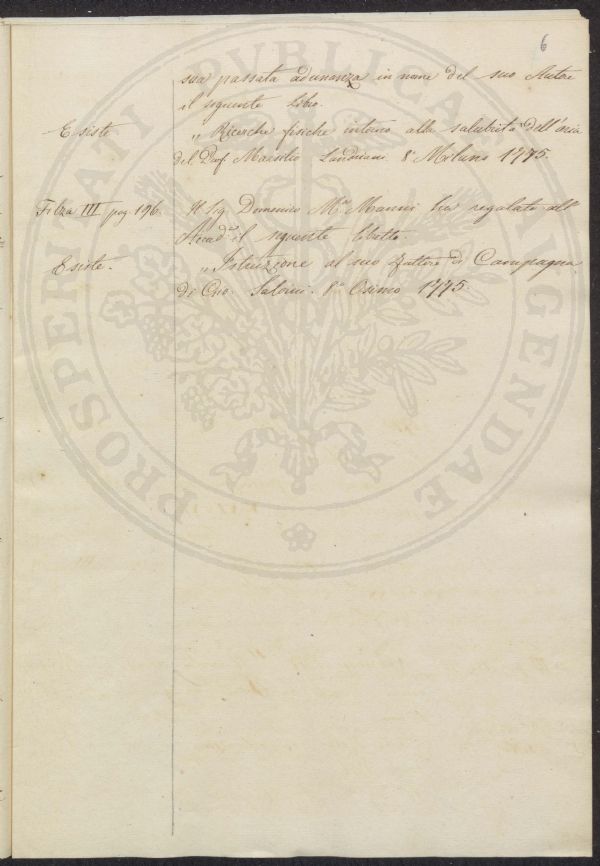 6
sua passata adunanza in nome del suo Autore
il seguente libro.
Esiste
„ Ricerche fisiche intorno alla salubrità dell'aria
del Prof. Marsilio Landriani 8° Milano 1775.
Filza III pag. 196.
Il Sig. Domenico M.ª Manni ha regalato all'
Accad.ª il seguente libretto.
Esiste.
„ Istruzione al suo Fattore di Campagna
di Salomi. 8° Osimo 1775.
PROSPERITATI PVBLICAE AVGENDAE